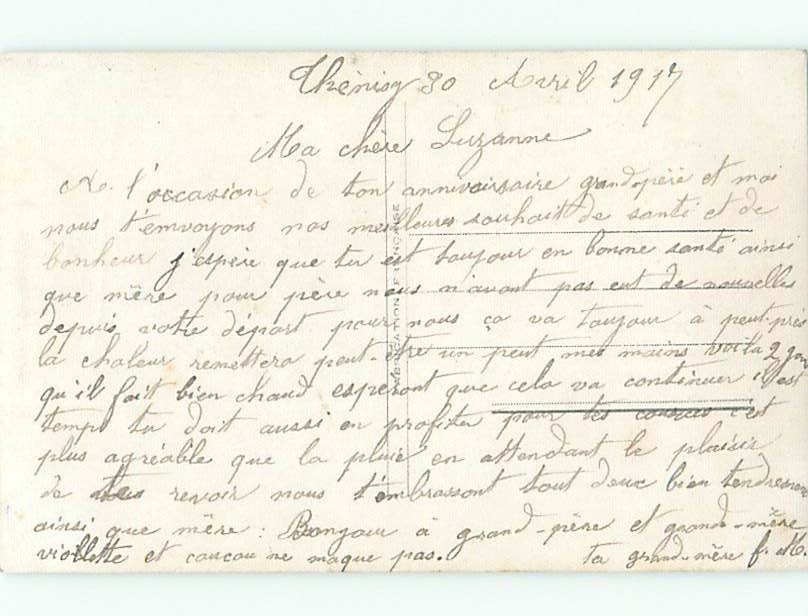 Thénisy 30 Avril 1917
Ma chère Suzanne
A l'occasion de ton annivairsaire grand-père et moi
nous t'emvoyons nos meilleures souhait de santé et de
bonheur j'espère que tu est toujour en bonne santé ainsi
que mère pour père nous n'avont pas eut de nouvelles
depuis votre départ pour nous ça va toujour à peut-près
la chaleur remettera peut-être un peut mes mains voila 2 jour
qu'il fait bien chaud esperont que cela va continuer il est
temps tu doit aussi en profiter pour tes courses c'est
plus agréable que la pluie en attendant le plaisir
de revoir nous t'embrassont tout deux bien tendrement
ainsi que mère : Bonjour à grand-père et grand-mère
violette et coucou ne maque pas. ta grand-mère f. M.
FABRICATION FRANÇAISE